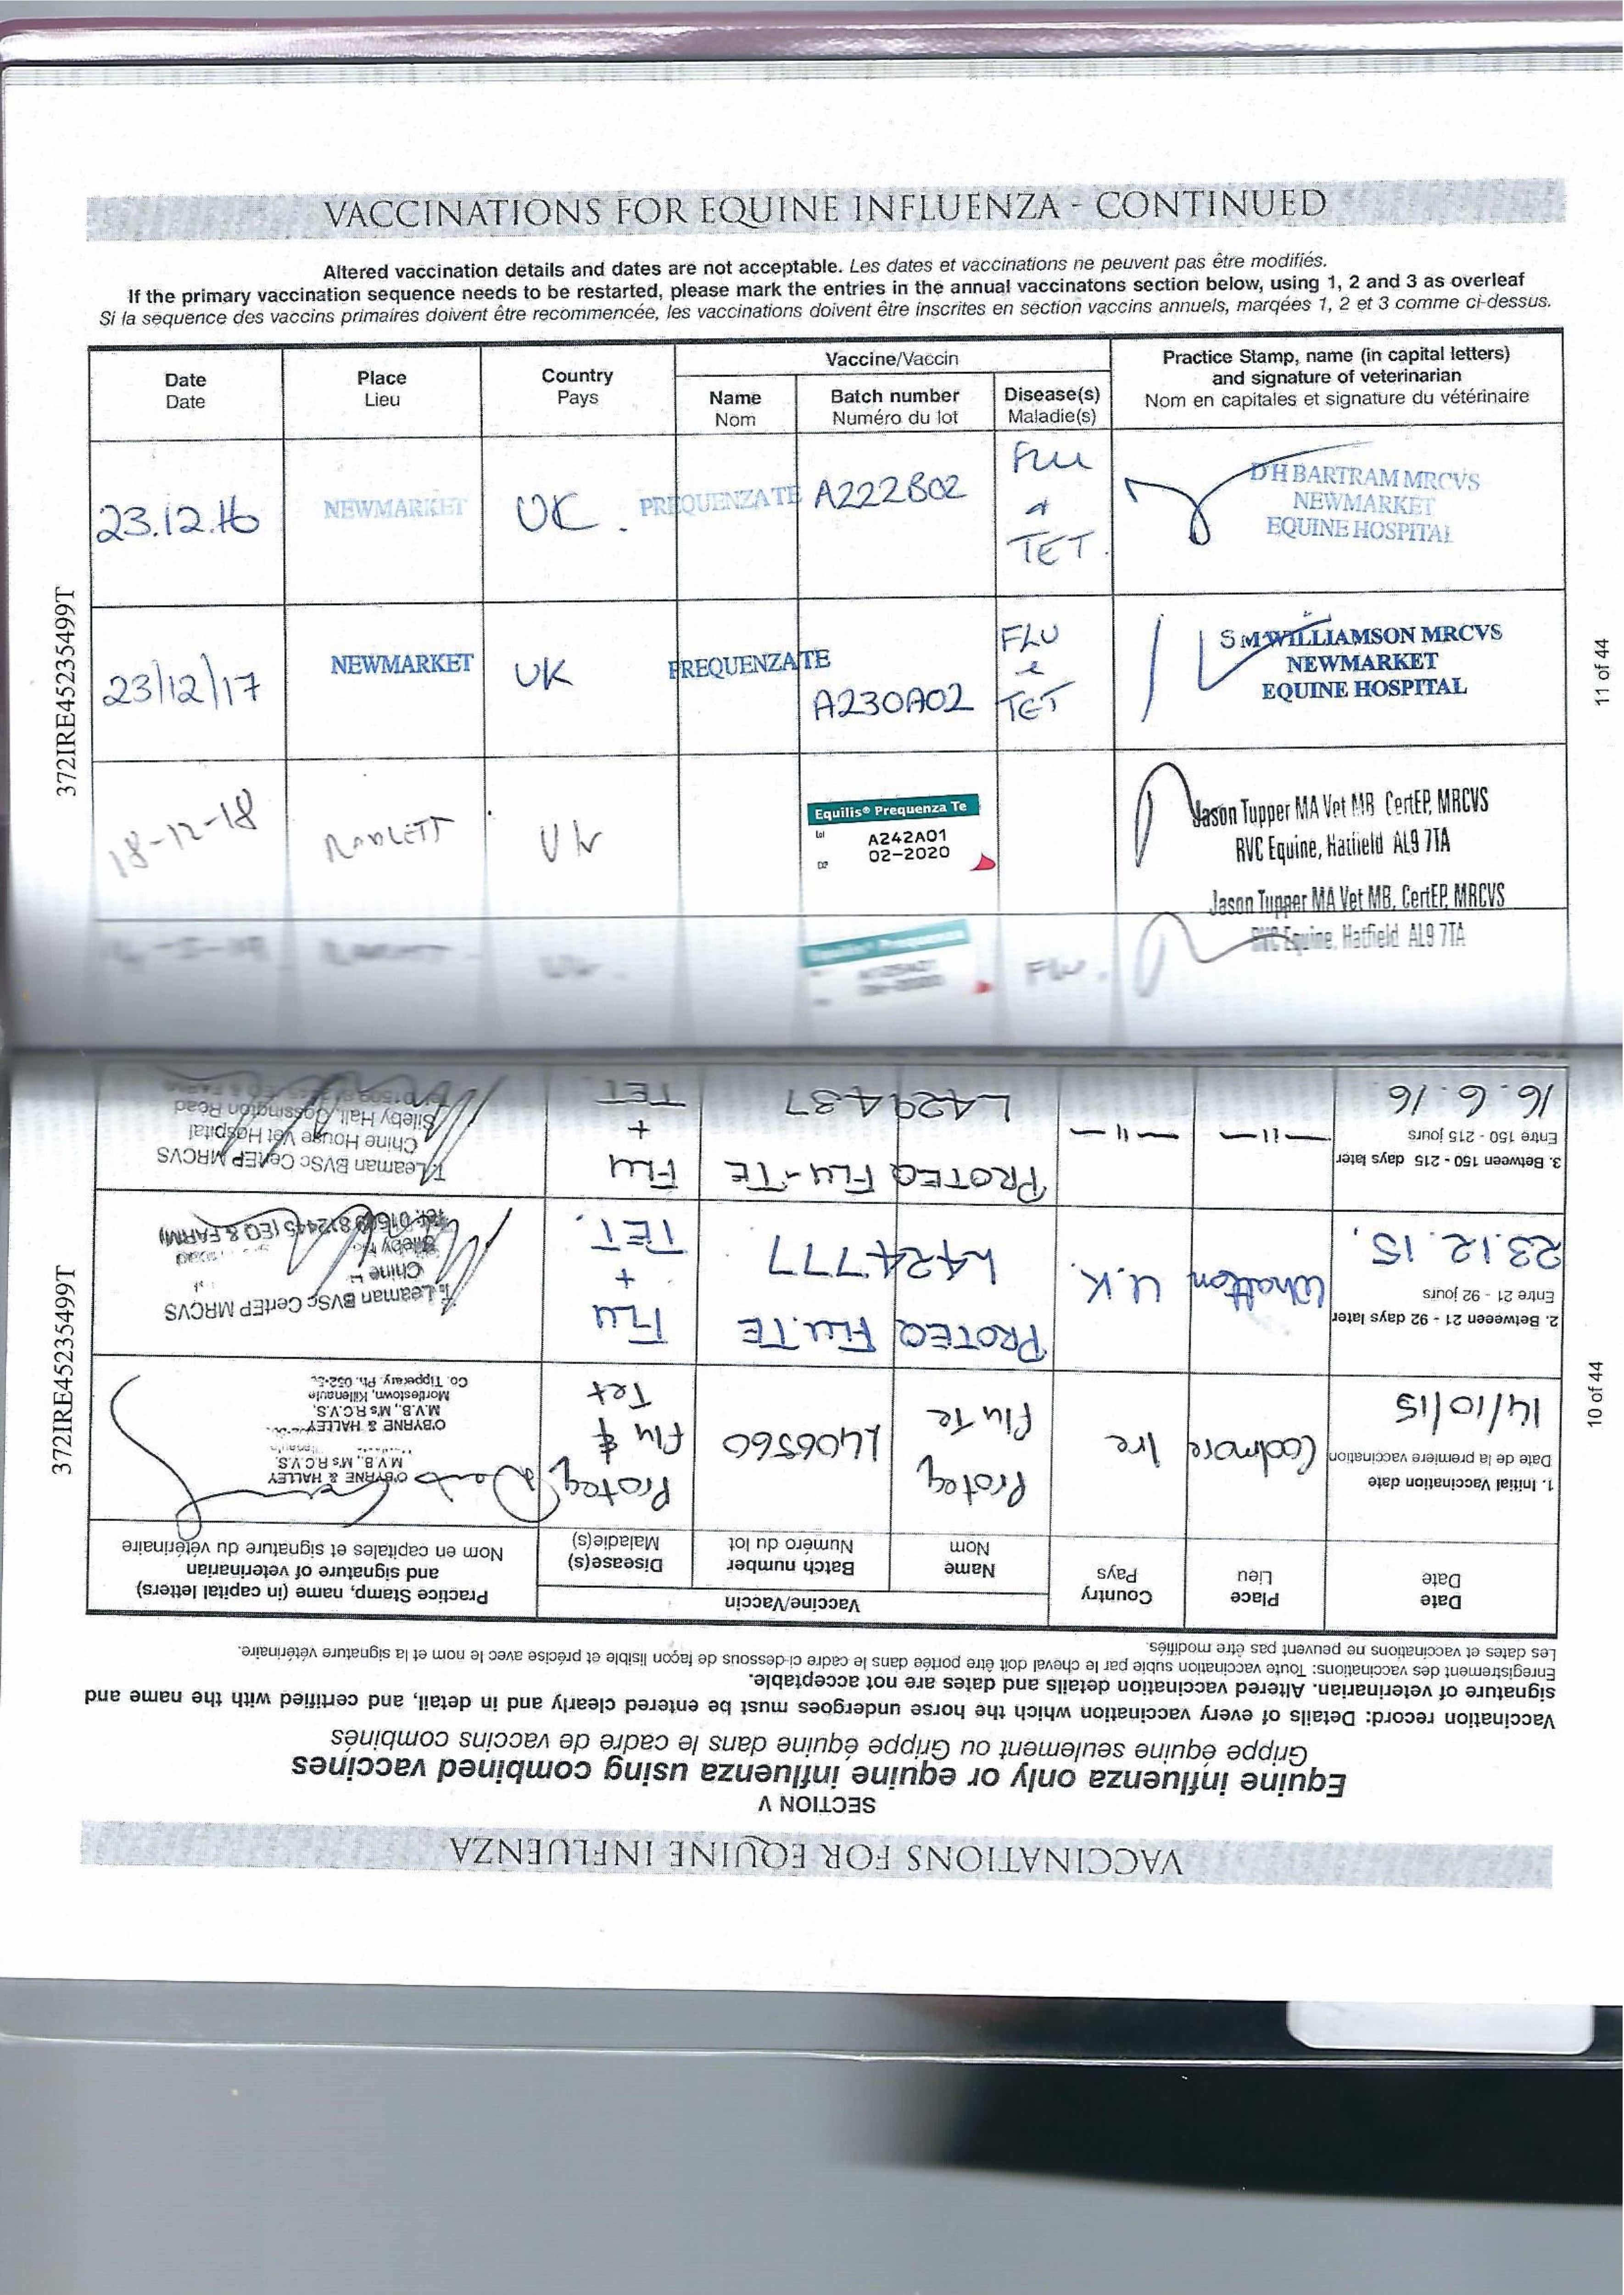 VACCINATIONS FOR EQUINE INFLUENZA - CONTINUED
Altered vaccination details and dates are not acceptable. Les dates et vaccinations ne peuvent pas être modifiés.
If the primary vaccination sequence needs to be restarted, please mark the entries in the annual vaccinatons section below, using 1, 2 and 3 as overleaf
Si la sequence des vaccins primaires doivent être recommencée, les vaccinations doivent être inscrites en section vaccins annuels, marqées 1, 2 et 3 comme ci-dessus.
Date
Date
Place
Lieu
Country
Pays
Vaccine/Vaccin
Name
Nom
Batch number
Numéro du lot
Disease(s)
Maladie(s)
Practice Stamp, name (in capital letters)
and signature of veterinarian
Nom en capitales et signature du vétérinaire
23.12.16
NEWMARKET
UK.
PREQUENZATE
A222B02
Flu
&
TET.
D H BARTRAM MRCVS
NEWMARKET
EQUINE HOSPITAL
23/12/17
NEWMARKET
UK
PREQUENZATE
A230A02
FLU
&
TET
S M WILLIAMSON MRCVS
NEWMARKET
EQUINE HOSPITAL
18-12-18
RADLETT
UK
Equilis® Prequenza Te
Lot
A242A01
EXP
02-2020
Jason Tupper MA Vet MB CertEP, MRCVS
RVC Equine, Hatfield AL9 7TA
Equilis® Prequenza
Flu.
Jason Tupper MA Vet MB, CertEP, MRCVS
RVC Equine, Hatfield AL9 7TA
372IRE45235499T
11 of 44
VACCINATIONS FOR EQUINE INFLUENZA
SECTION V
Equine influenza only or equine influenza using combined vaccines
Grippe équine seulement ou Grippe équine dans le cadre de vaccins combinés
Vaccination record: Details of every vaccination which the horse undergoes must be entered clearly and in detail, and certified with the name and
signature of veterinarian. Altered vaccination details and dates are not acceptable.
Enregistrement des vaccinations: Toute vaccination subie par le cheval doit être portée dans le cadre ci-dessous de façon lisible et précise avec le nom et la signature vétérinaire.
Les dates et vaccinations ne peuvent pas être modifiés.
Date
Date
Place
Lieu
Country
Pays
Vaccine/Vaccin
Name
Nom
Batch number
Numéro du lot
Disease(s)
Maladie(s)
Practice Stamp, name (in capital letters)
and signature of veterinarian
Nom en capitales et signature du vétérinaire
1. Initial Vaccination date
Date de la première vaccination
14/10/15
Coolmore
Ire
Proteq
Flu Te
L406560
Proteq
Flu &
Tet
O'BYRNE & HALLEY
M.V.B., Ms R.C.V.S.
O'BYRNE & HALLEY
M.V.B., Ms R.C.V.S.
Mortlestown, Killenaule
Co. Tipperary. Ph. 052-
2. Between 21 - 92 days later
Entre 21 - 92 jours
23.12.15.
Whatton
U.K.
PROTEQ FLU.TE
L424777
FLU
+
TET.
T. Leaman BVSc CertEP MRCVS
Chine
Sileby
Tel: 01509 812445 (EQ & FARM)
3. Between 150 - 215 days later
Entre 150 - 215 jours
16.6.16.
— 11 —
— 11 —
PROTEQ FLU-TE
L429437
FLU
+
TET
T. Leaman BVSc CertEP MRCVS
Chine House Vet Hospital
Sileby Hall, Cossington Road
372IRE45235499T
10 of 44